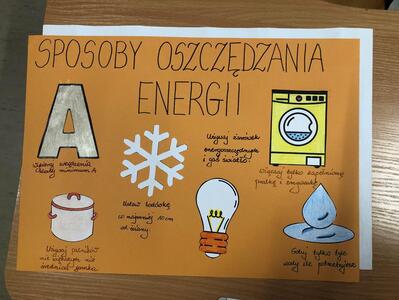 SPOSOBY OSZCZĘDZANIA
ENERGII
A
Używaj żarówek
energooszczędnych
i gaś światło.
klasy minimum A
Włączaj tylko zapełnioną
pralkę i zmywarkę
Ustaw lodówkę
co najmniej 10 cm
od ściany.
Używaj palników
nie większych niż
średnica garnka
Gotuj tylko tyle
wody ile potrzebujesz